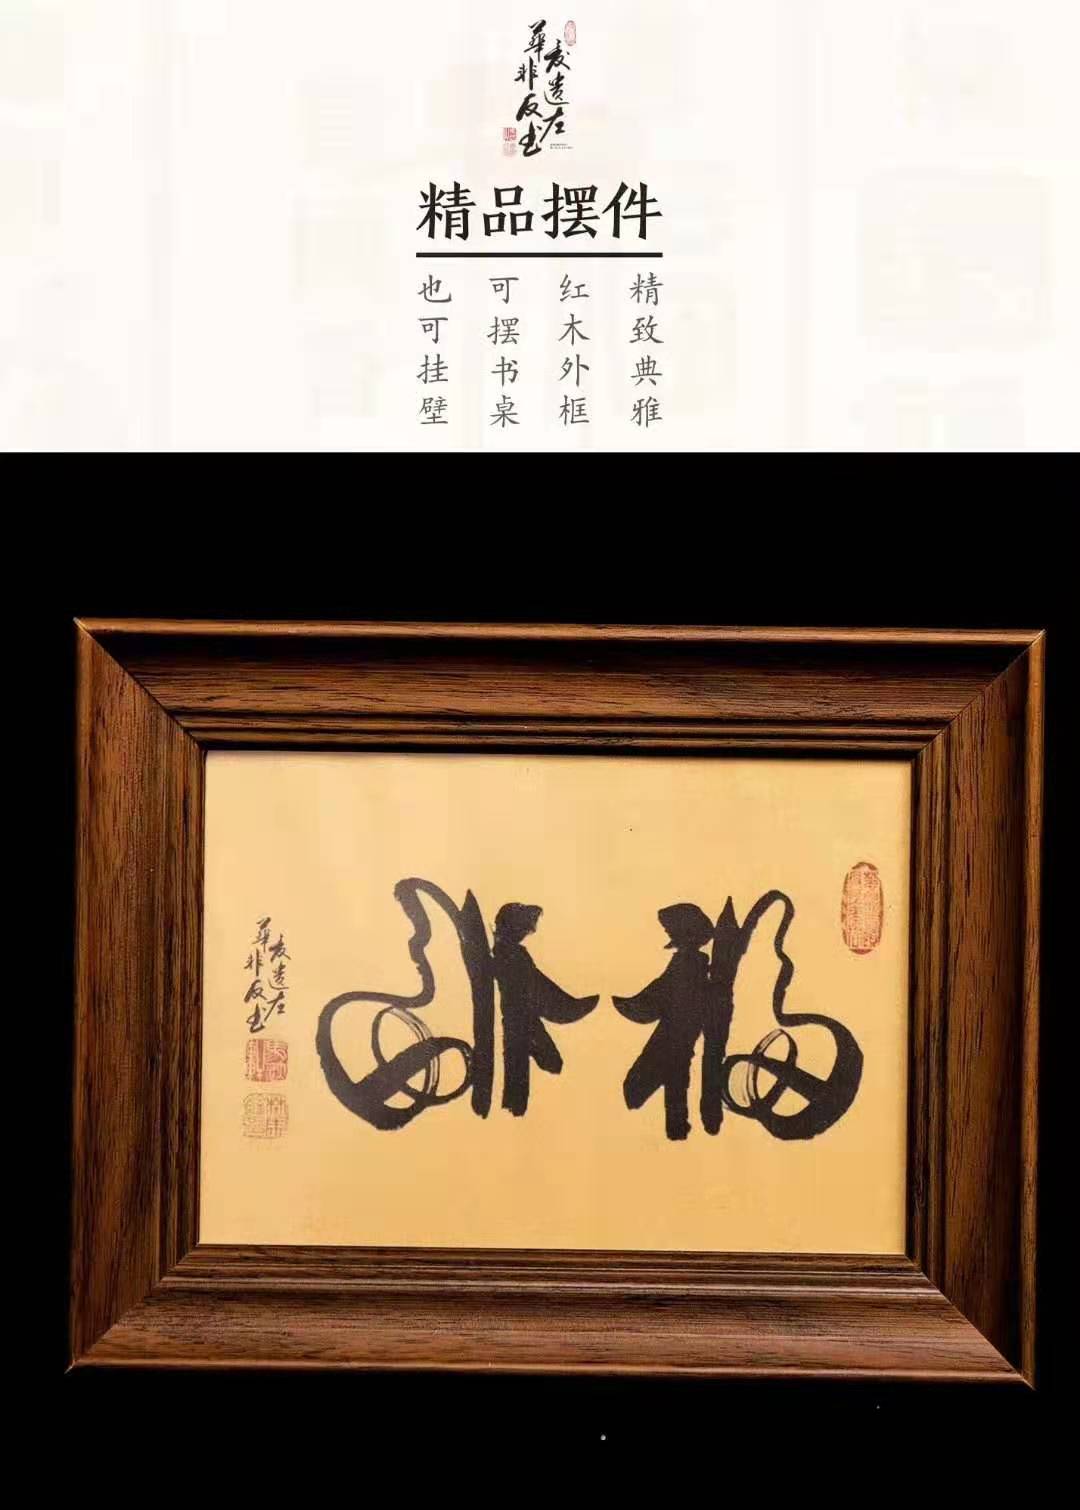 華非反书
夏遗左
精品摆件
精致典雅
红木外框
可摆书桌
也可挂壁
福福
華非反书
夏遗左